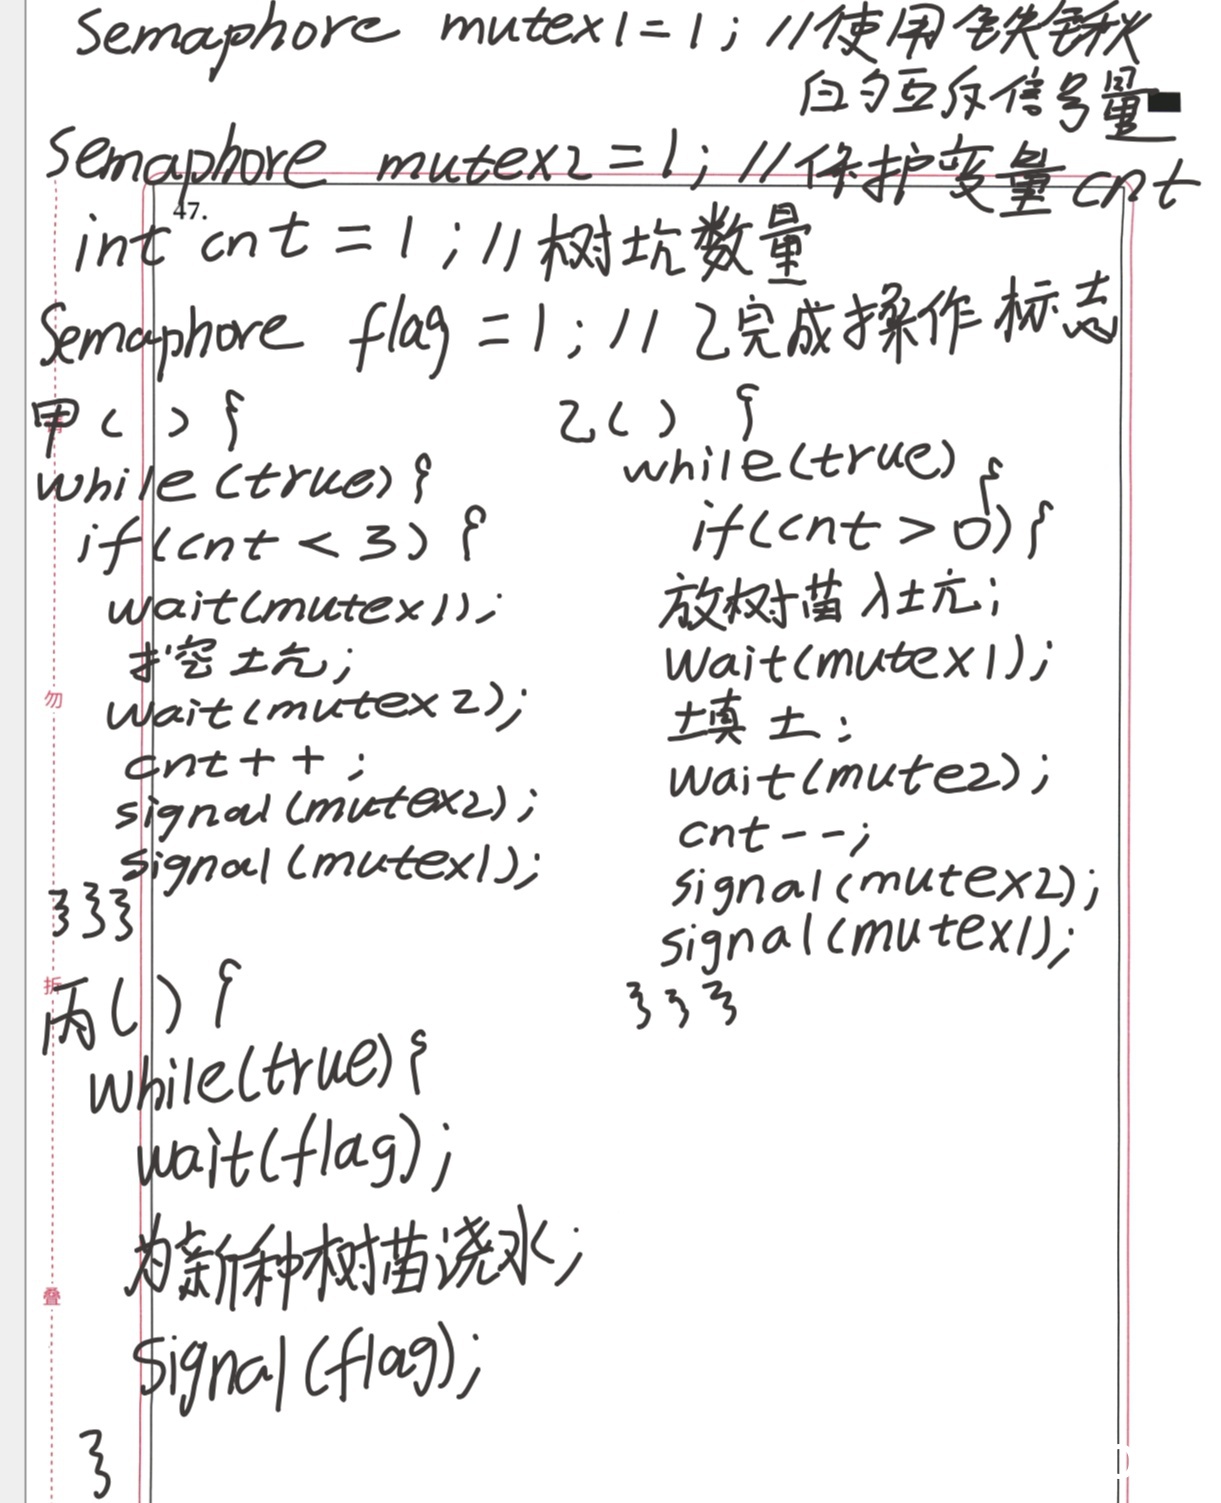 Semaphore mutex1=1; //使用铁锹
的互斥信号量
Semaphore mutex2=1; //保护变量cnt
47.
int cnt = 1; //树坑数量
Semaphore flag =1; //乙完成操作标志
甲(){
while(true){
if(cnt < 3){
wait(mutex1);
挖空坑;
wait(mutex2);
cnt++;
signal(mutex2);
signal(mutex1);
}}}
乙(){
while(true){
if(cnt > 0){
放树苗入坑;
wait(mutex1);
填土;
wait(mute2);
cnt--;
signal(mutex2);
signal(mutex1);
}}}
丙(){
while(true){
wait(flag);
为新种树苗浇水;
signal(flag);
}
勿
折
叠